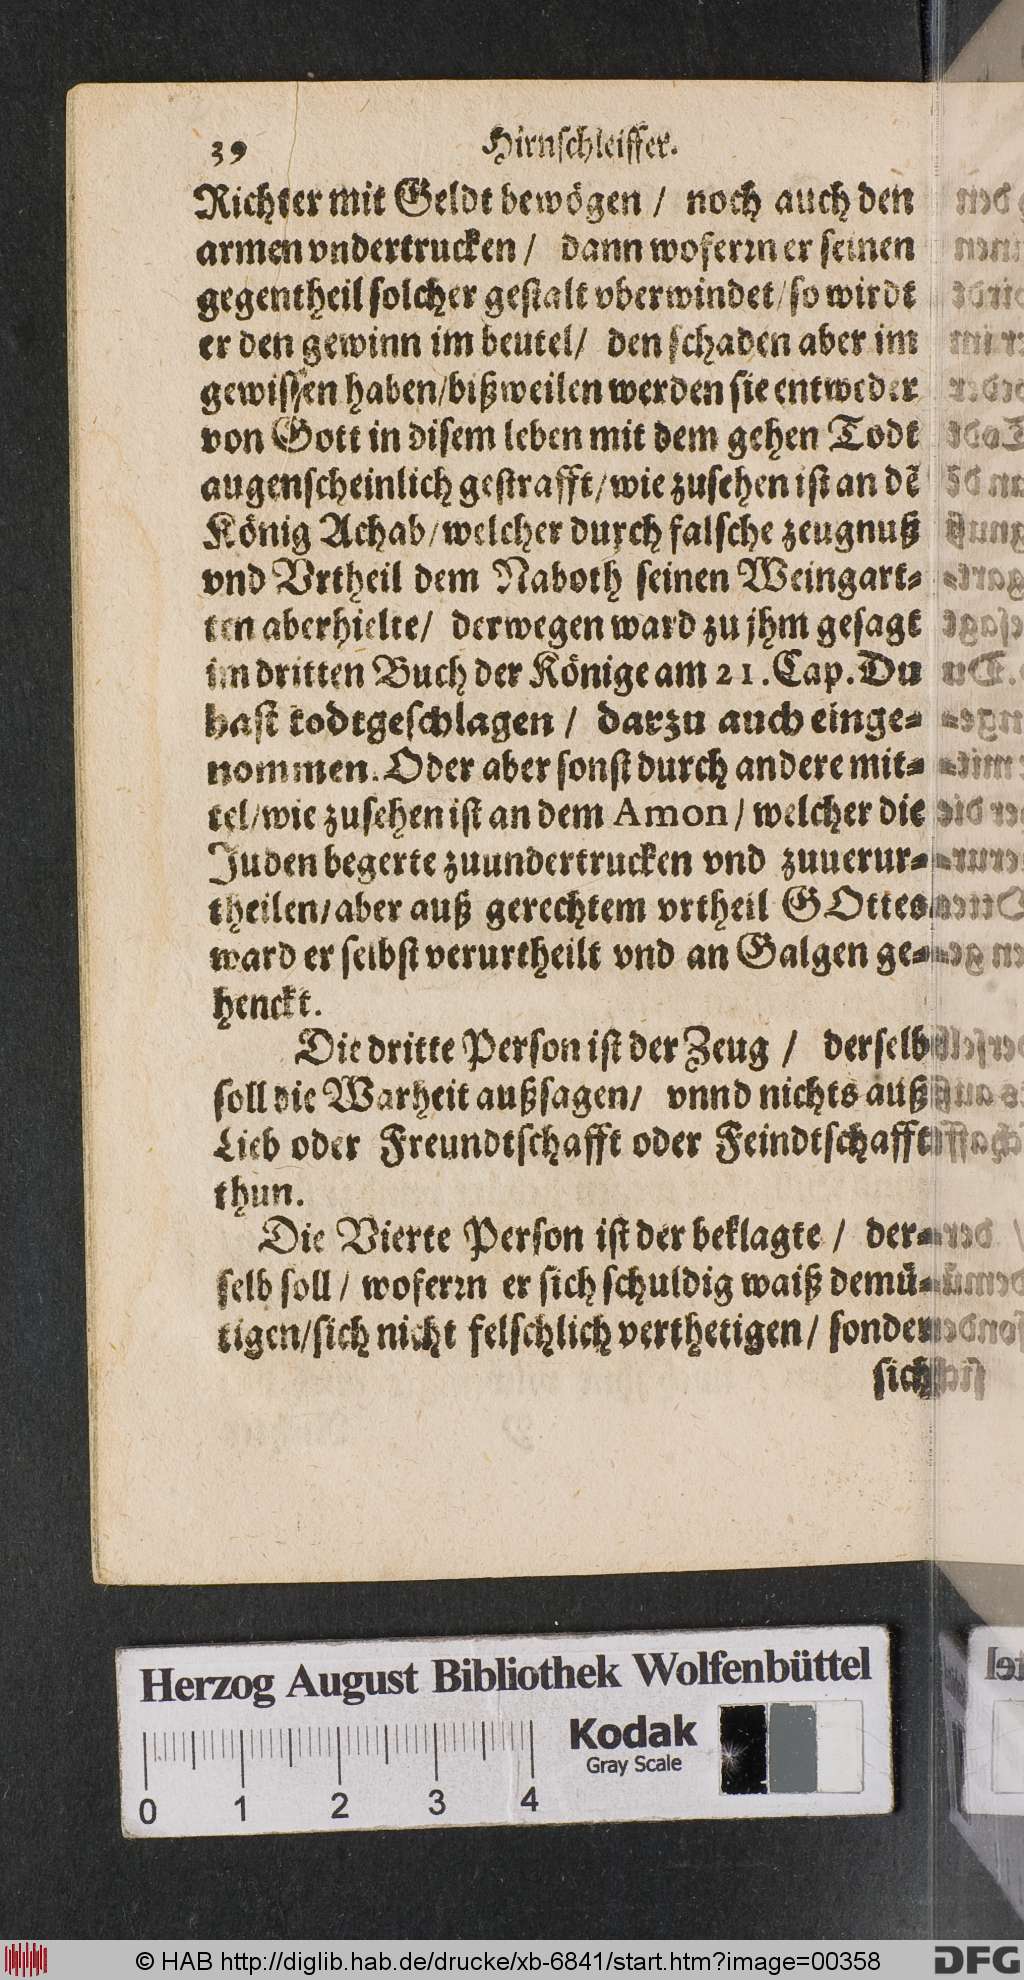 39 Hirnschleiffer.
Richter mit Geldt bewögen / noch auch den
armen vndertrucken / dann woferrn er seinen
gegentheil solcher gestalt vberwindet / so wirdt
er den gewinn im beutel / den schaden aber im
gewissen haben / bißweilen werden sie entweder
von Gott in disem leben mit dem gehen Todt
augenscheinlich gestrafft / wie zusehen ist an dē
König Achab / welcher durch falsche zeugnuß
vnd Vrtheil dem Naboth seinen Weingart⸗
ten aberhielte / derwegen ward zu jhm gesagt
im dritten Buch der Könige am 21. Cap. Du
hast todtgeschlagen / darzu auch einge⸗
nommen. Oder aber sonst durch andere mit⸗
tel / wie zusehen ist an dem Amon / welcher die
Juden begerte zuundertrucken vnd zuuerur⸗
theilen / aber auß gerechtem vrtheil GOttes
ward er selbst verurtheilt vnd an Galgen ge⸗
henckt.
Die dritte Person ist der Zeug / derselb
soll die Warheit außsagen / vnnd nichts auß
Lieb oder Freundtschafft oder Feindtschafft
thun.
Die Vierte Person ist der beklagte / der⸗
selb soll / woferrn er sich schuldig waiß demü⸗
tigen / sich nicht felschlich verthetigen / sonder
sich
Herzog August Bibliothek Wolfenbüttel
Kodak
Gray Scale
0 1 2 3 4
© HAB http://diglib.hab.de/drucke/xb-6841/start.htm?image=00358
DFG